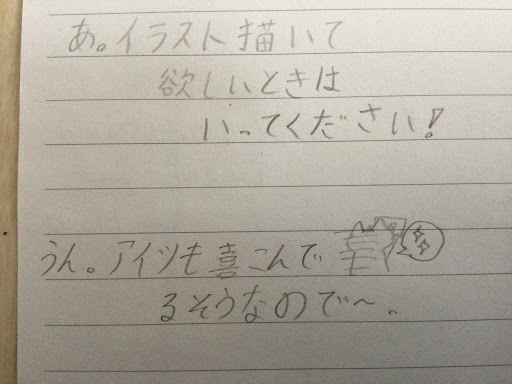 あ。イラスト描いて
欲しいときは
いってください!
うん。アイツも喜こんで
るそうなので〜。